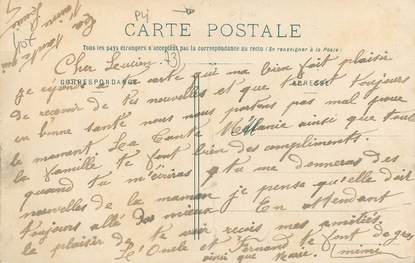 CARTE POSTALE
Tous les pays étrangers n'acceptent pas la correspondance au recto (Se renseigner à la Poste)
CORRESPONDANCE
ADRESSE
Cher Lucien
je réponds à ta carte qui ma bien fait plaisir
de recevoir de tes nouvelles et que tu est toujours
en bonne santé nous nous portons pas mal pour
le moment. La Tante Mélanie ainsi que toute
la famille te font bien des compliments.
quand tu m'écriras tu me donneras des
nouvelles de ta maman je pense qu'elle doit
toujours allé des mieux En attendant
le plaisir de te voir reçois mes amitiés.
L'Oncle et Fernand te font de gros
ainsi que Marie. mimi